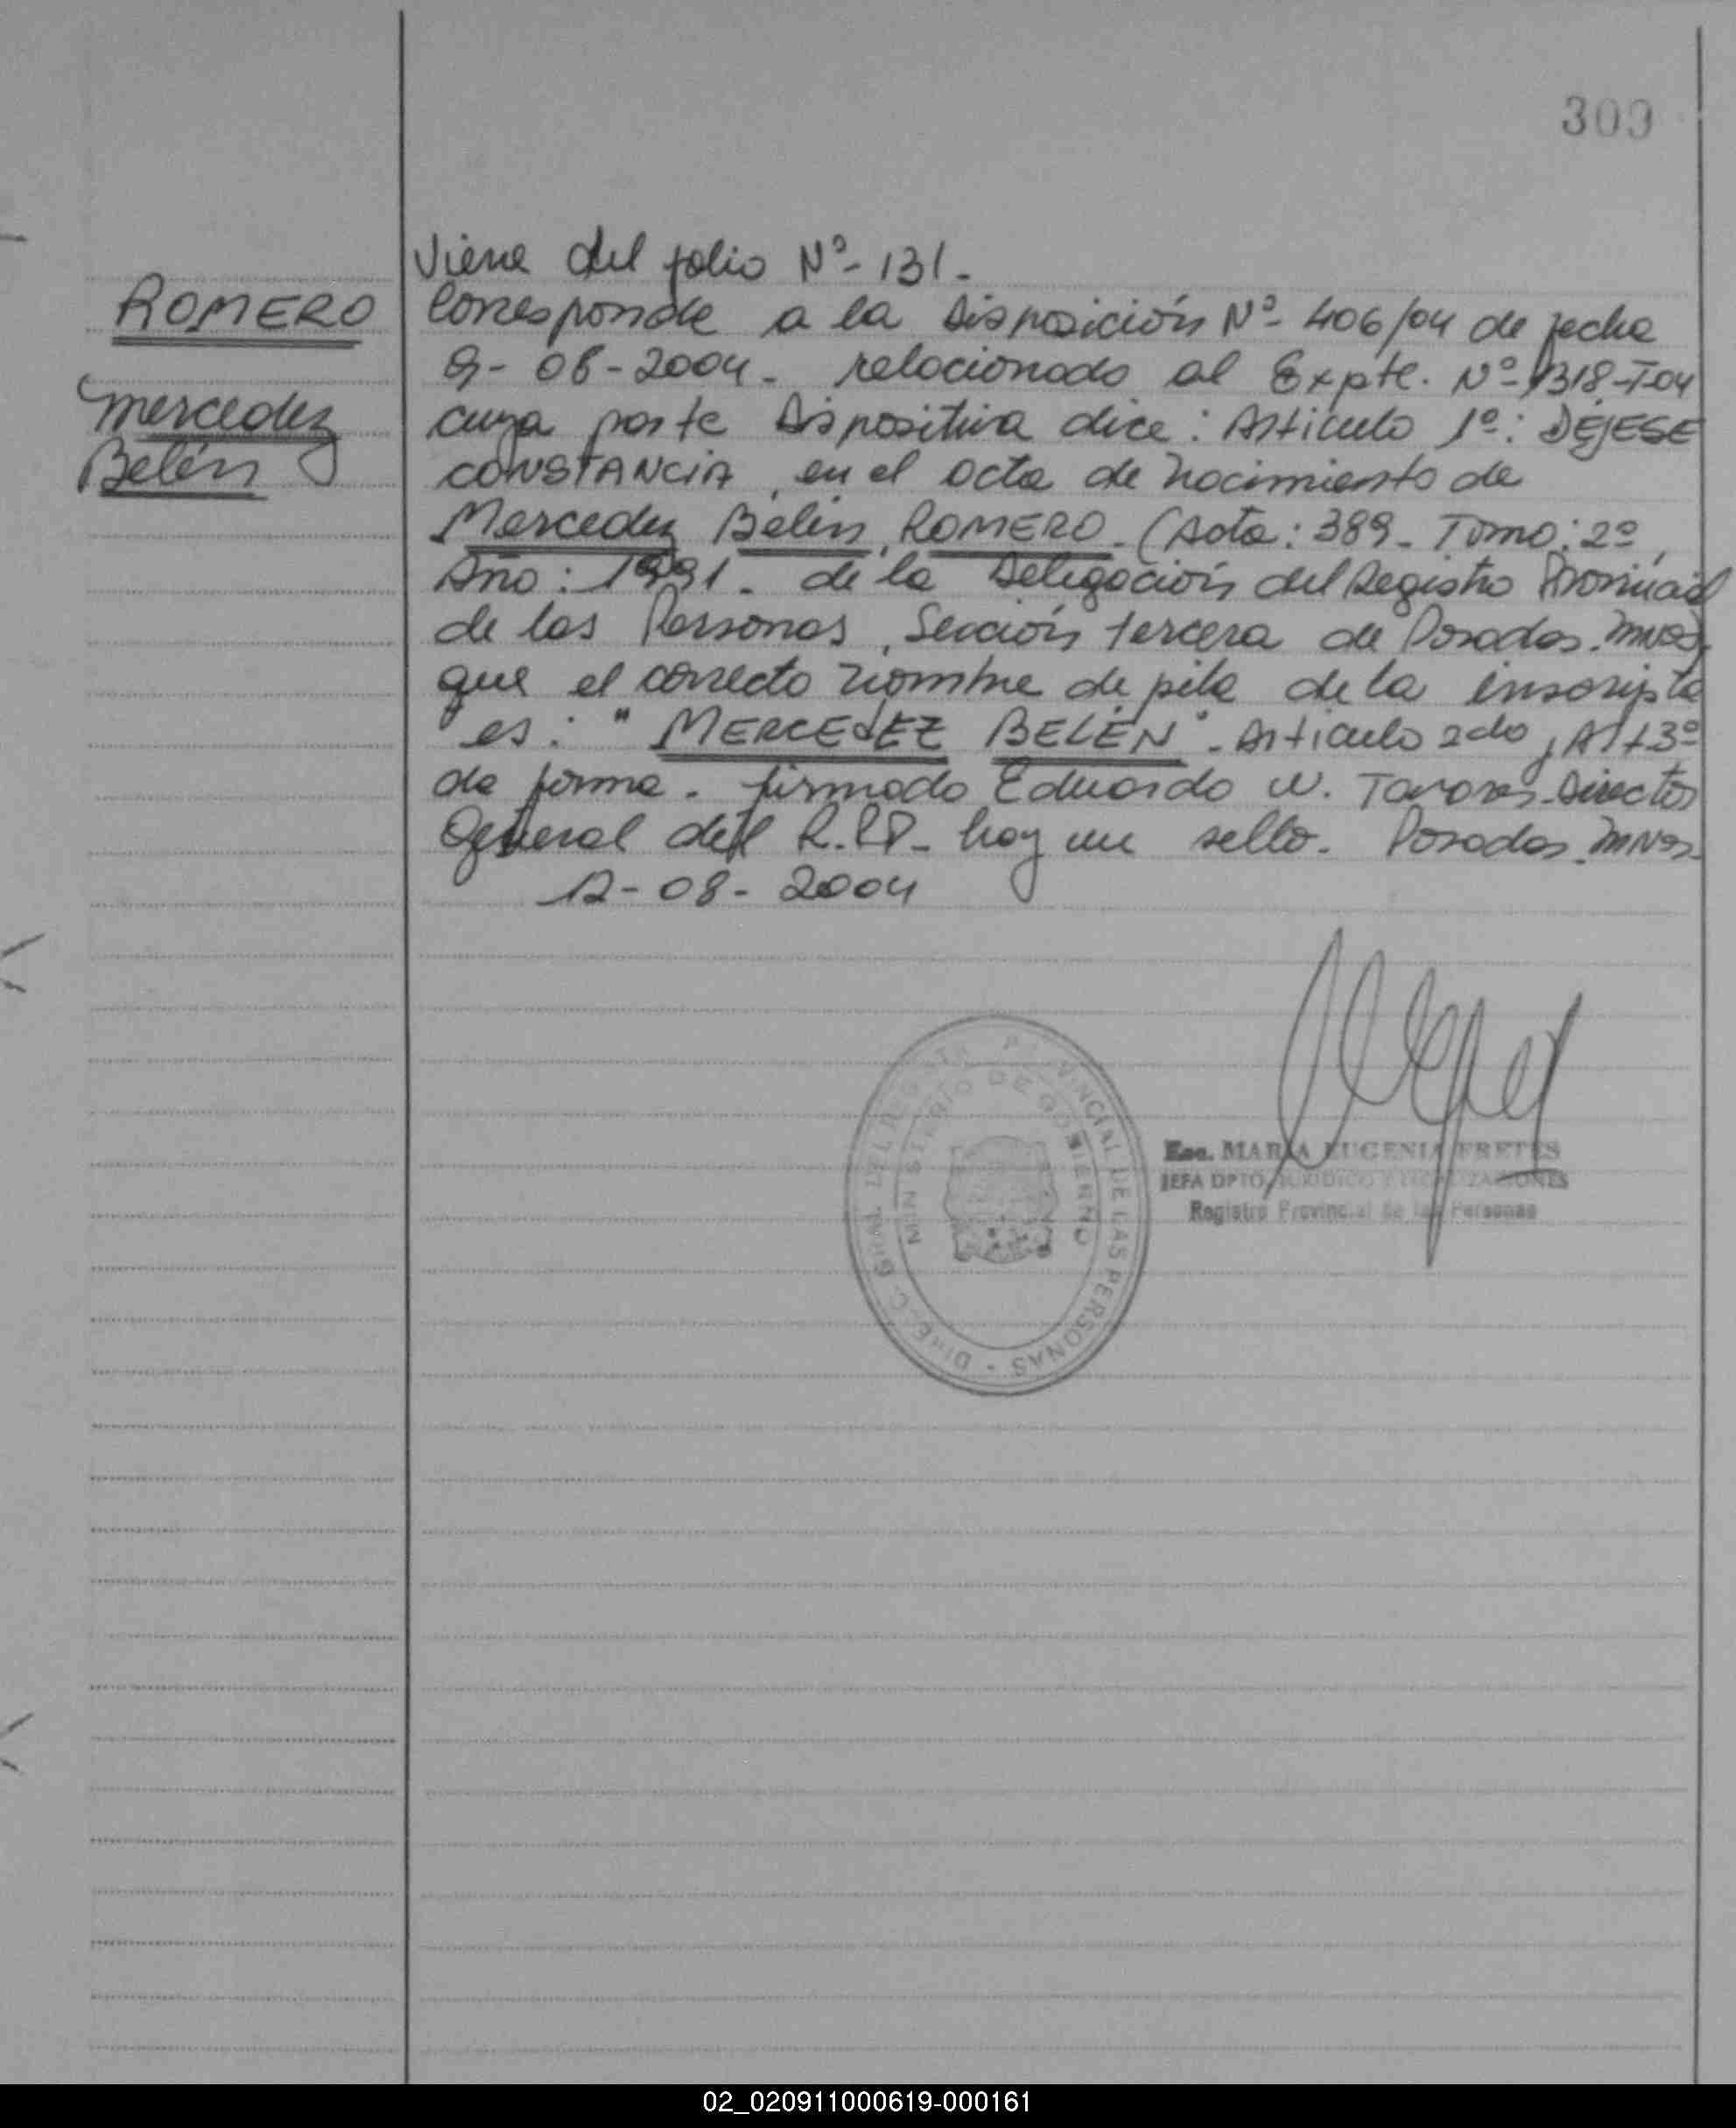 309
Viene del folio Nº- 131-
ROMERO
Mercedez
Belén
Corresponde a la Disposición Nº- 406/04 de fecha
9- 08-2004- relacionado al Expte. Nº- 1318-T-04
cuya parte Dispositiva dice: Artículo 1º: DÉJESE
CONSTANCIA, en el acta de nacimiento de
Mercedez Belén, ROMERO- (Acta: 389- Tomo: 2º,
Año: 1991- de la Delegación del Registro Provincial
de las Personas, Sección tercera de Posadas. Mnes)
que el correcto nombre de pila de la inscripta
es: "MERCEdEZ BELÉN"- Artículo 2do, Art 3º
de forma. firmado Eduardo N. Tavares-Director
General del R.P.P- hay un sello- Posadas, Mnes-
12-08-2004
DIREC. GRAL. DEL REGISTRO PROVINCIAL DE LAS PERSONAS -
MINISTERIO DE GOBIERNO
Esc. MARIA EUGENIA FRETES
JEFA DPTO. JURIDICO Y LEGALIZACIONES
Registro Provincial de las Personas
02_020911000619-000161